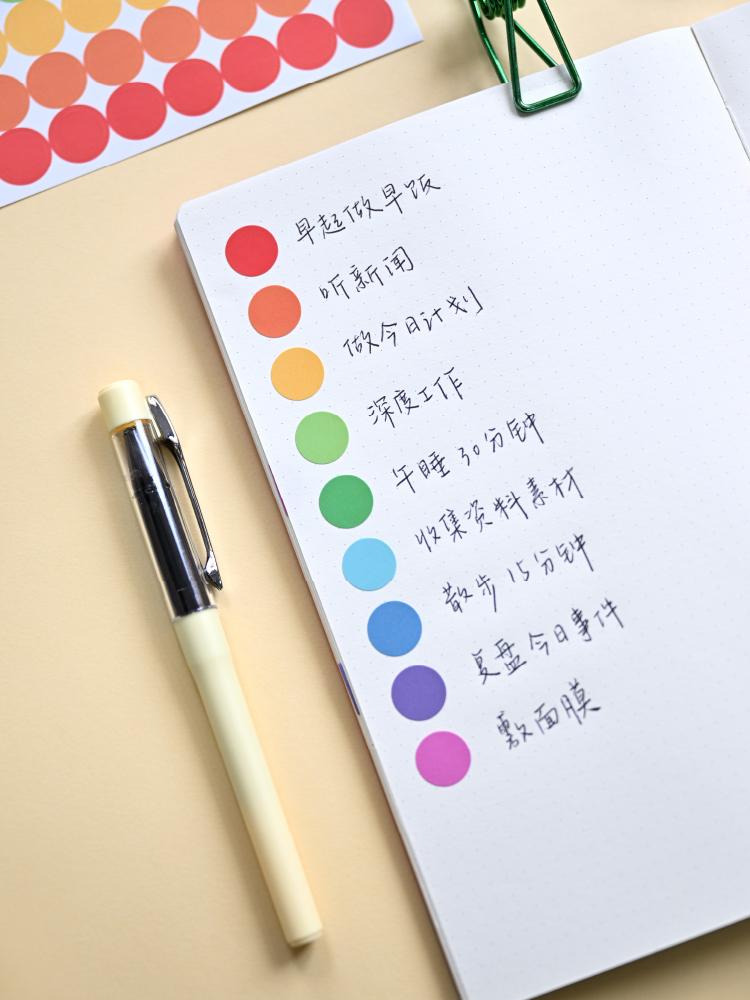 早起做早饭
听新闻
做今日计划
深度工作
午睡30分钟
收集资料素材
散步15分钟
复盘今日事件
敷面膜